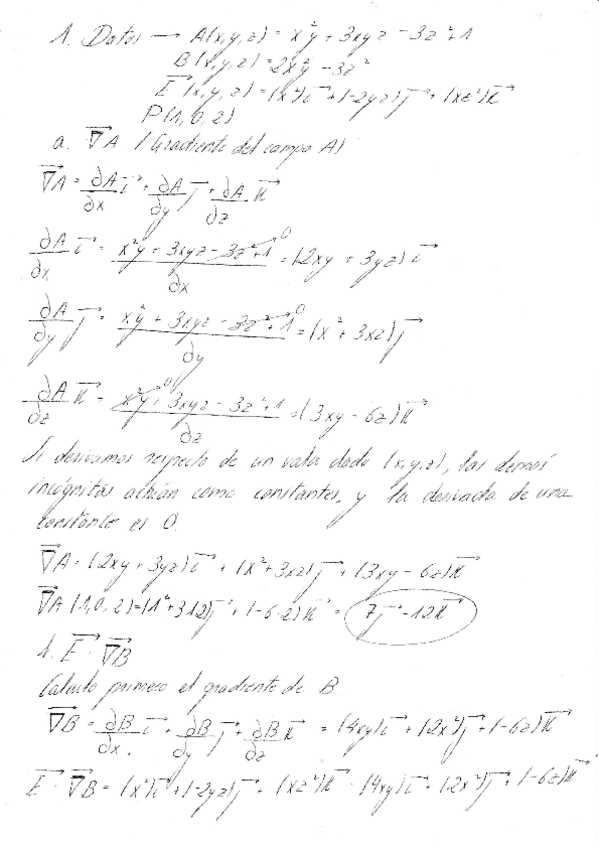 1. Datos → A(x,y,z) = x²y + 3xyz - 3z² + 1
B(x,y,z) = 2x²y - 3z²
E⃗(x,y,z) = (x²)i⃗ + (-2yz)j⃗ + (xz²)k⃗
P(1,0,2)
a. ∇⃗A (Gradiente del campo A)
∇⃗A = ∂A/∂x i⃗ + ∂A/∂y j⃗ + ∂A/∂z k⃗
∂A/∂x i⃗ = x²y + 3xyz - 3z² + 1 0/∂x = (2xy + 3yz) i⃗
∂A/∂y j⃗ = x²y + 3xyz - 3z² + 1 0/∂y = (x² + 3xz) j⃗
∂A/∂z k⃗ = x²y 0 + 3xyz - 3z² + 1/∂z = (3xy - 6z) k⃗
Si derivamos respecto de un valor dado (x,y,z), las demás
incógnitas actúan como constantes, y la derivada de una
constante es 0.
∇⃗A = (2xy + 3yz) i⃗ + (x² + 3xz) j⃗ + (3xy - 6z) k⃗
∇⃗A (1,0,2) = (1² + 3·1·2) j⃗ + (-6·2) k⃗ = 7j⃗ - 12k⃗
b. E⃗ · ∇⃗B
Calculo primero el gradiente de B.
∇⃗B = ∂B/∂x i⃗ + ∂B/∂y j⃗ + ∂B/∂z k⃗ = (4xy) i⃗ + (2x²) j⃗ + (-6z) k⃗
E⃗ · ∇⃗B = (x²) i⃗ + (-2yz) j⃗ + (xz²) k⃗ · (4xy) i⃗ + (2x²) j⃗ + (-6z) k⃗